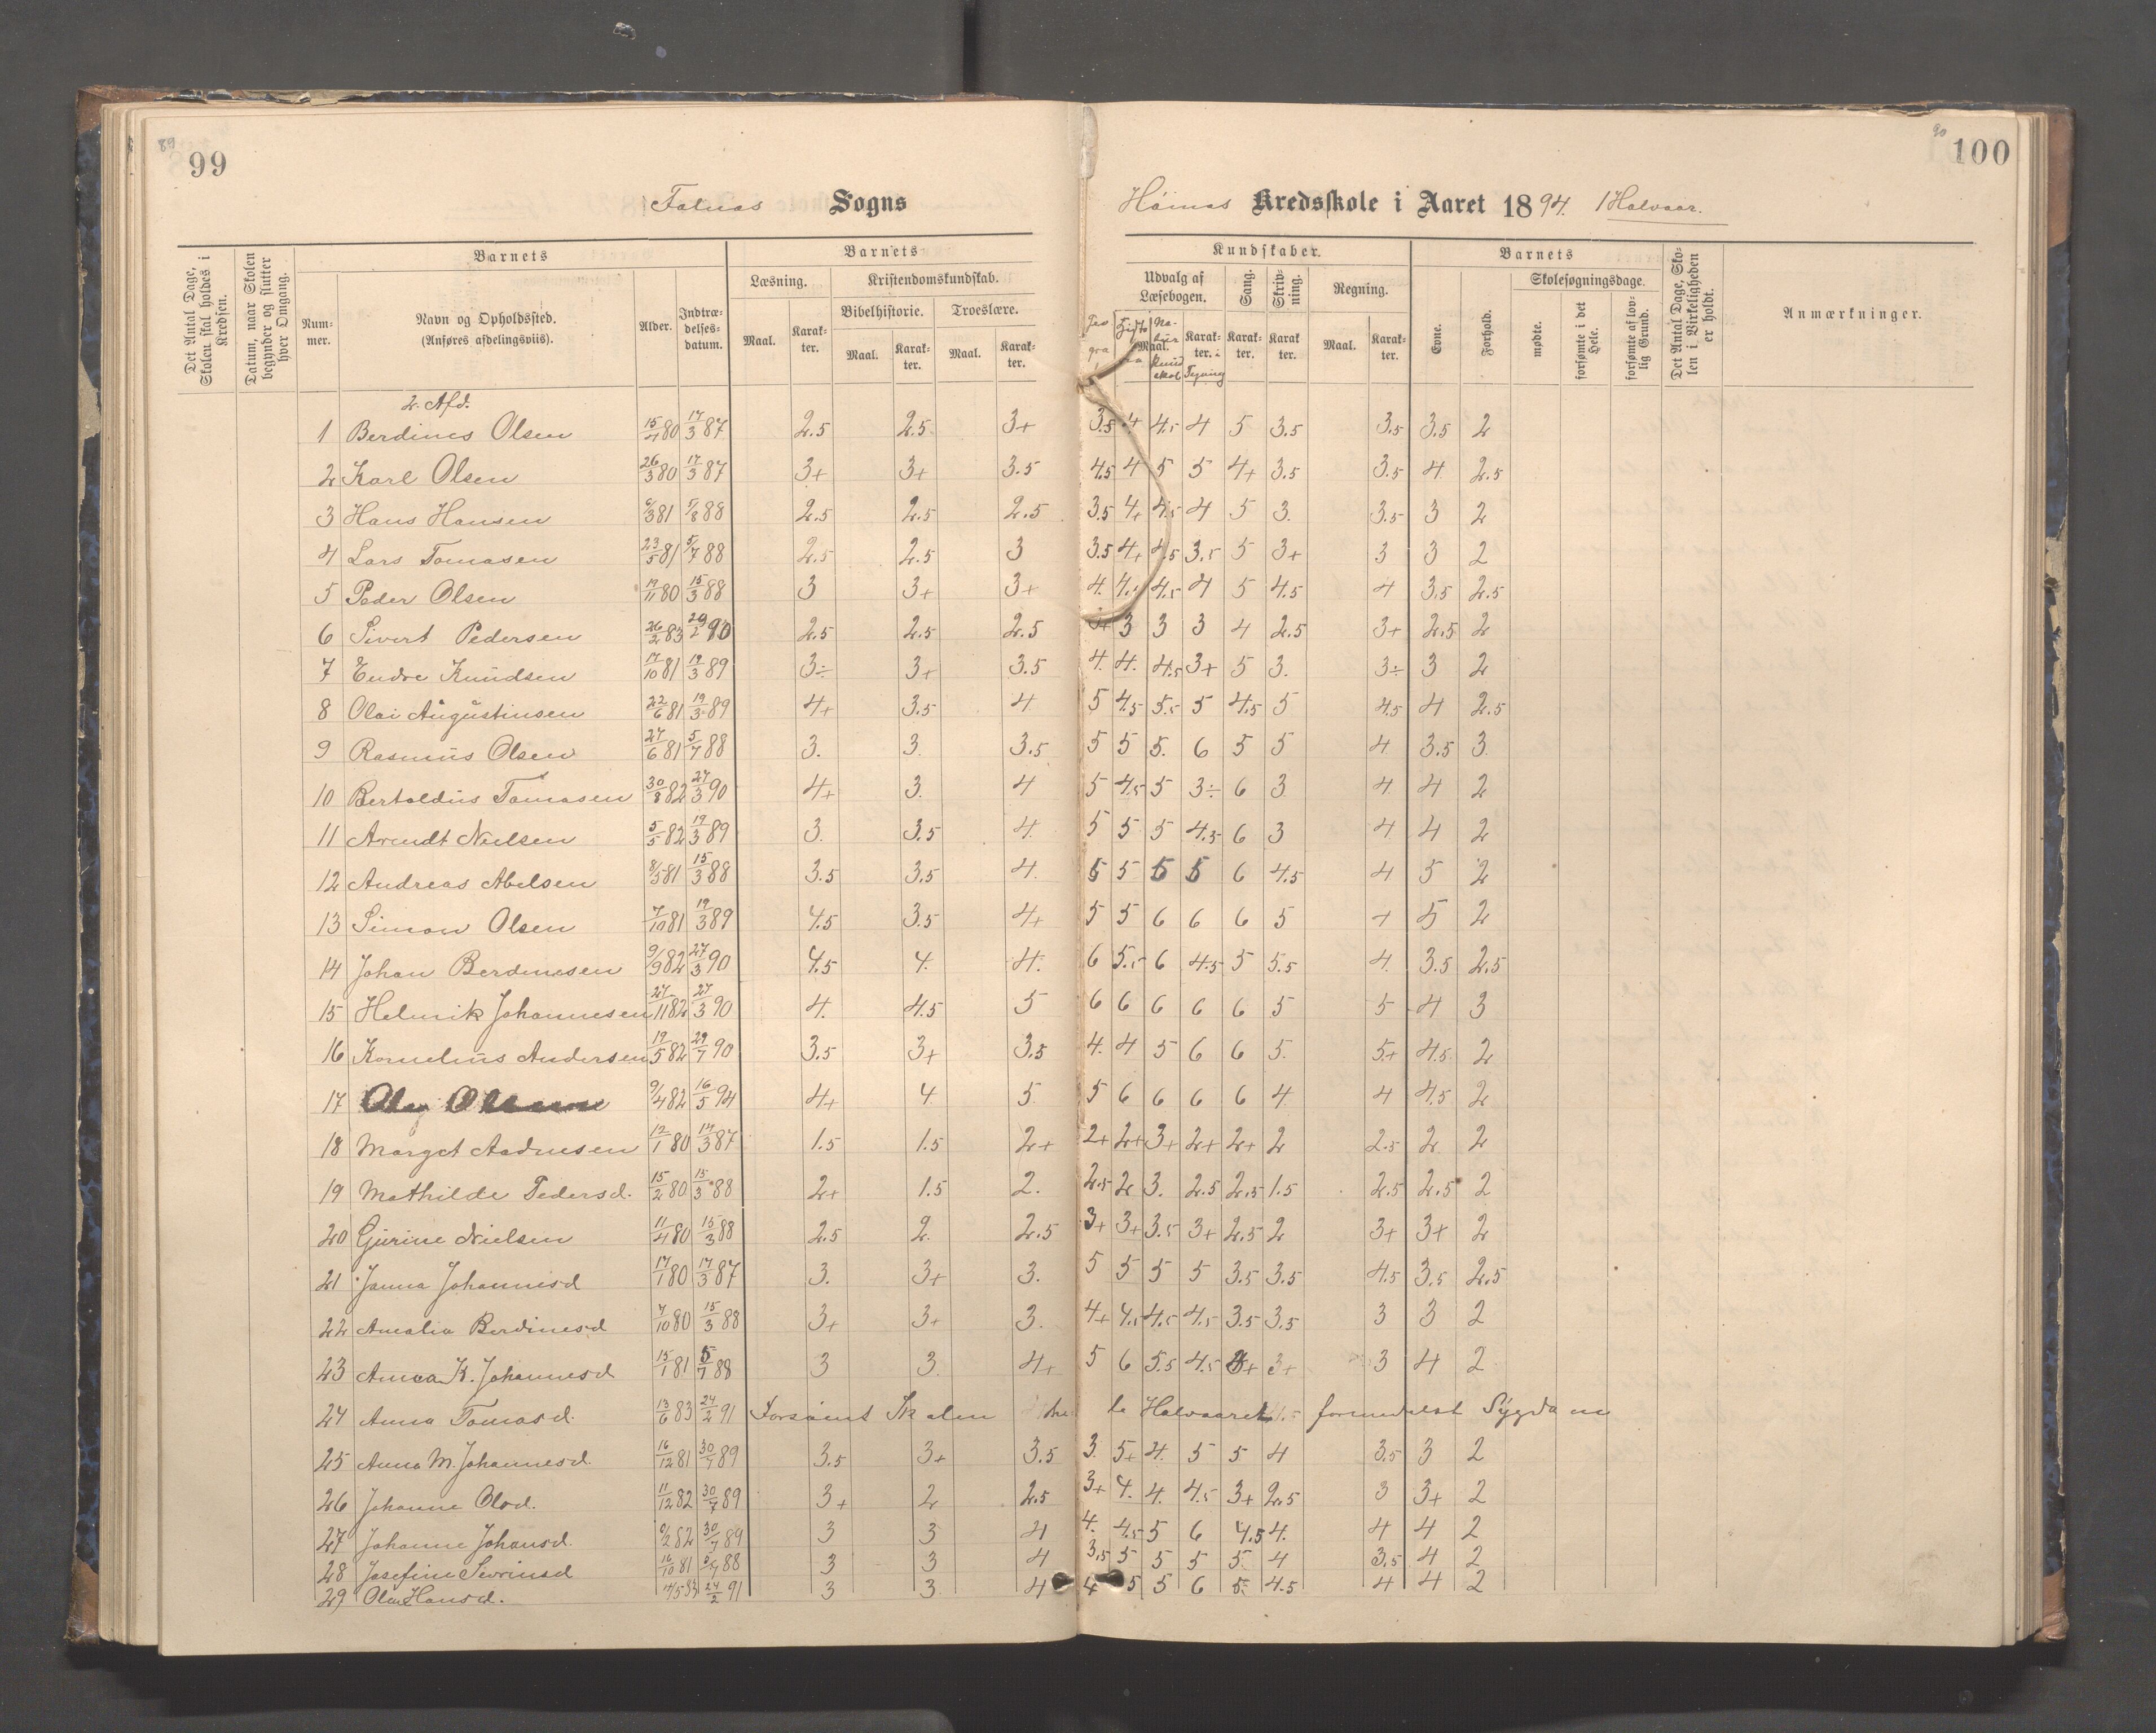 99
100
Falnas Sogns
Höines Kredsskole i Aaret 1894. 1 Halvaar.
Det Antal Dage, Skolen skal holdes i Kredsen.
Datum, naar Skolen begynder og slutter hver Omgang.
Barnets
Nummer.
Navn og Opholdssted. (Anføres afdelingsviis).
Alder.
Indtrædelsesdatum.
Barnets
Læsning.
Kristendomskundskab.
Bibelhistorie. Troeslære.
Maal. Karakter. Maal. Karakter. Maal. Karakter.
Kundskaber.
Udvalg af Læsebogen.
Maal. Karakter.
Sang. Karakter.
Skrivning. Karakter
Regning.
Maal. Karakter.
Barnets
Evne.
Forhold.
Skolesøgningsdage.
mødte.
forsømte i det Hele.
forsømte af lovlig Grund.
Det Antal Dage, Skolen i Virkeligheden er holdt.
Anmærkninger.
2. Afd.
1 Berdines Olsen 15/4 80 17/3 87 2.5 2.5 3+ 3.5 4 4.5 4 5 3.5 3.5 3.5 2
2 Karl Olsen 26/3 80 17/3 87 3+ 3+ 3.5 4.5 4 5 5 4+ 3.5 3.5 4 2.5
3 Hans Hansen 6/3 81 5/8 88 2.5 2.5 2.5 3.5 4+ 4.5 4 5 3. 3.5 3 2
4 Lars Tomasen 23/5 81 5/7 88 2.5 2.5 3 3.5 4+ 4.5 3.5 5 3+ 3 3 2
5 Peder Olsen 19/11 80 15/3 88 3 3+ 3+ 4. 4.5 4.5 4 5 4.5 4 3.5 2.5
6 Sivert Pedersen 26/2 83 20/2 90 2.5 2.5 2.5 3+ 3 3 3 4 2.5 3+ 2.5 2
7 Endre Knudsen 17/10 81 19/3 89 3÷ 3+ 3.5 4. 4. 4.5 3+ 5 3. 3÷ 3 2
8 Olai Augustinsen 22/6 81 19/3 89 4+ 3.5 4 5 4.5 5.5 5 4.5 5 4.5 4 2.5
9 Rasmus Olsen 27/6 81 5/7 88 3. 3. 3.5 5 5 5. 6 5 5 4 3.5 3
10 Bertoldus Tomasen 30/8 82 27/3 90 4+ 3. 4 5 4.5 5 3÷ 6 3 4 4 2
11 Arendt Nielsen 5/5 82 19/3 89 3. 3.5 4. 5 5 5 4.5 6 3 4 4 2
12 Andreas Abelsen 8/5 81 15/3 88 3.5 3.5 4. 5 5 5 5 6 4.5 4 5 2
13 Simon Olsen 7/10 81 19/3 89 4.5 3.5 4+ 5 5 6 6 6 5 4 5 2
14 Johan Berdinesen 9/9 82 27/3 90 4.5 4. 4. 6 5.5 6 4.5 5 5.5 4. 3.5 2.5
15 Helmik Johannesen 27/11 82 27/3 90 4. 4.5 5 6 6 6 6 6 5 5 4 3
16 Kornelius Andersen 19/5 82 29/7 90 3.5 3+ 3.5 4. 4 5 6 6 5. 5+ 4.5 2
17 Olaj Olsen 9/4 82 16/5 94 4+ 4 5 5 6 6 6 6 4 4 4.5 2
18 Margret Aadnesen 12/1 80 17/3 87 1.5 1.5 2+ 2+ 2+ 3+ 2+ 2+ 2 2.5 2 2
19 Mathilde Pedersd. 15/2 80 15/3 88 2+ 1.5 2. 2.5 2 3. 2.5 2.5 1.5 2.5 2.5 2
20 Gurine Nielsen 11/4 80 15/3 88 2.5 2. 2.5 3+ 3+ 3.5 3+ 2.5 2 3+ 3+ 2
21 Janna Johannesd 17/1 80 17/3 87 3. 3+ 3. 5 5 5 5 3.5 3.5 4.5 3.5 2.5
22 Amalia Berdinesd 7/10 80 15/3 88 3+ 3+ 3. 4+ 4.5 4.5 4.5 3.5 3.5 3 3 2
23 Anna K. Johannesd 15/1 81 5/7 88 3 3. 4+ 5 6 5.5 4.5 4+ 3+ 3 4 2
24 Anna Tomasd. 13/6 83 24/2 91 Forsömt Skolen hele Halvaaret formedelst Sygdom
25 Anna M. Johannesd. 16/12 81 30/7 89 3.5 3+ 3.5 3. 5+ 4. 5 5 4 3.5 3 2
26 Johanne Olsd. 11/12 82 30/7 89 3+ 2 2.5 3+ 4. 4. 4.5 3+ 2.5 3 3+ 2
27 Johanne Johansd. 6/2 82 30/7 89 3 3 4 4. 4.5 5 6 4.5 4. 4 4 2
28 Josefine Sivrinsd 16/10 81 5/7 88 3 3 4 3.5 5 5 5 5. 4 3.5 4 2
29 Olava Hansd. 14/5 83 24/2 91 3 3. 4 4 5 5 6 5. 4.5 4 4 2